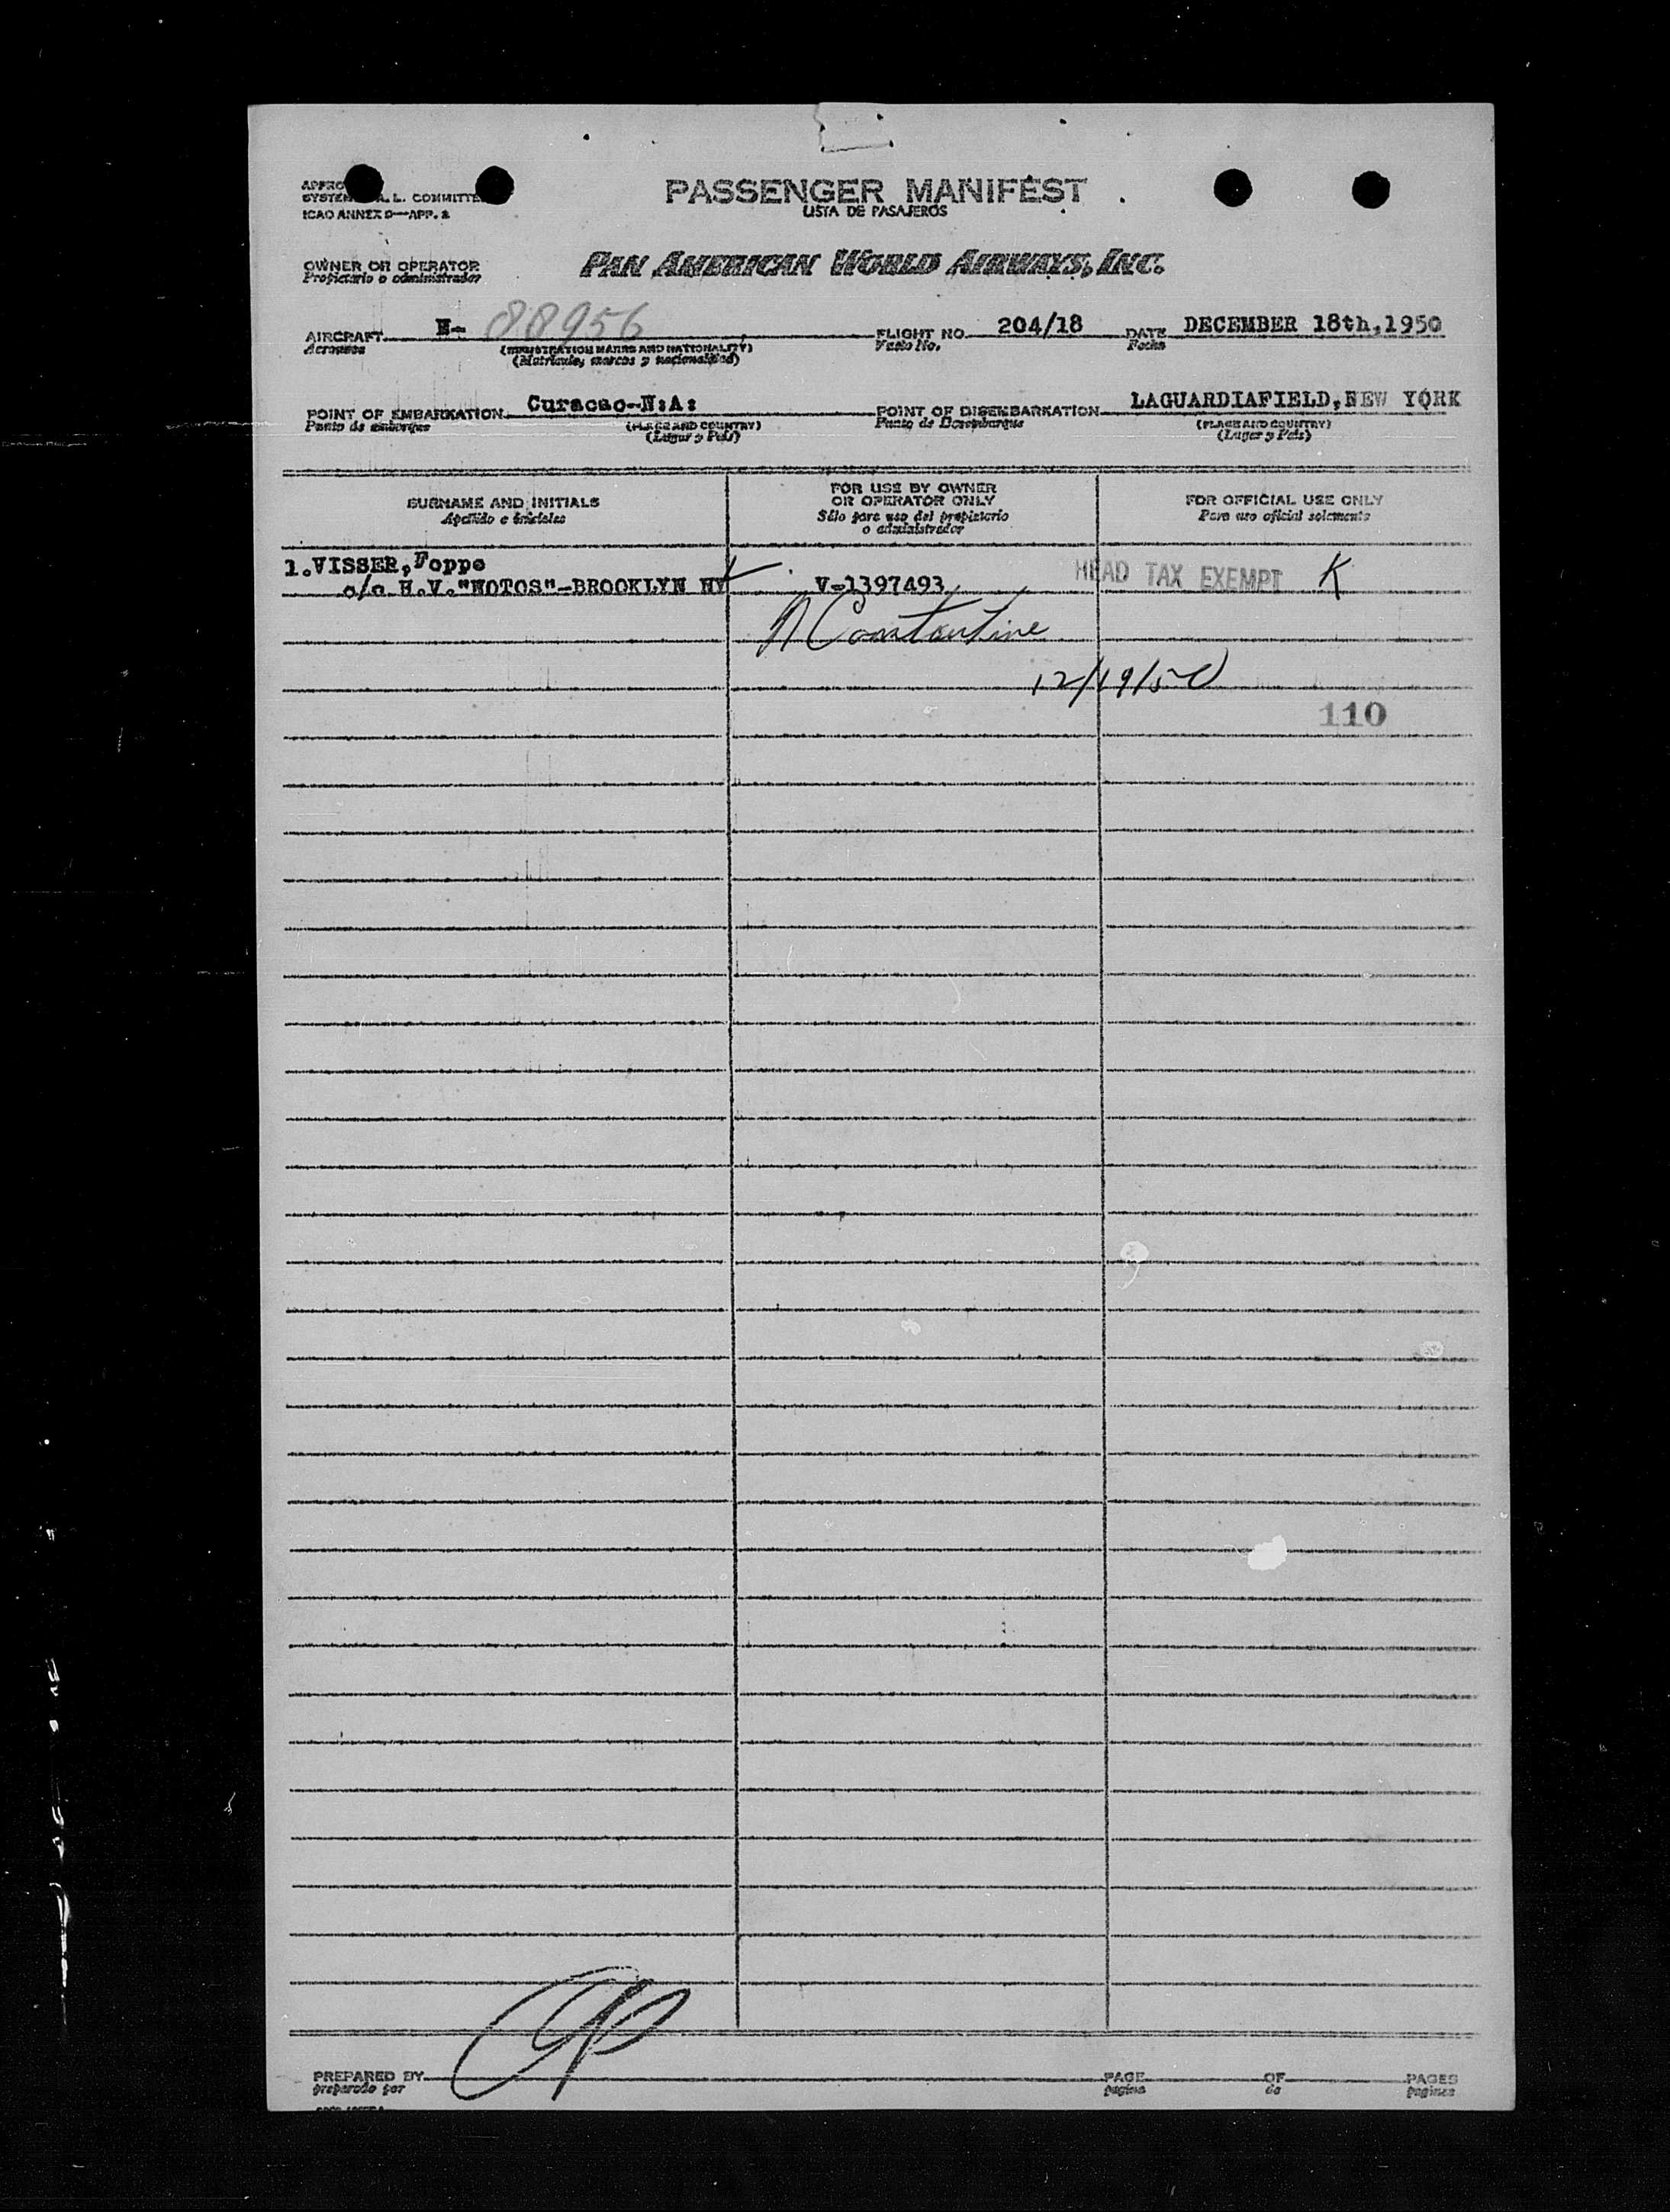 PASSENGER MANIFEST
LISTA DE PASAJEROS
SYSTEM A. L. COMMITTEE
ICAO ANNEX 9—APP. 2
OWNER OR OPERATOR PAN AMERICAN WORLD AIRWAYS, INC.
Propietario o administrador
AIRCRAFT N- 88956 FLIGHT NO. 204/18 DATE DECEMBER 18th,1950
Aeronave (REGISTRATION MARKS AND NATIONALITY) Vuelo No. Fecha
(Matricula, marcas y nacionalidad)
POINT OF EMBARKATION Curacao-N:A: POINT OF DISEMBARKATION LAGUARDIAFIELD,NEW YORK
Punto de embarque (PLACE AND COUNTRY) Punto de Desembarque (PLACE AND COUNTRY)
(Lugar y País) (Lugar y País)
SURNAME AND INITIALS FOR USE BY OWNER OR OPERATOR ONLY FOR OFFICIAL USE ONLY
Apellido e iniciales Sólo para uso del propietario o administrador Para uso oficial solamente
1.VISSER,Foppe
c/o H.V."NOTOS"-BROOKLYN NY V-1397493 HEAD TAX EXEMPT K
Constantine
12/19/50
110
PREPARED BY PAGE OF PAGES
preparado por pagina de paginas